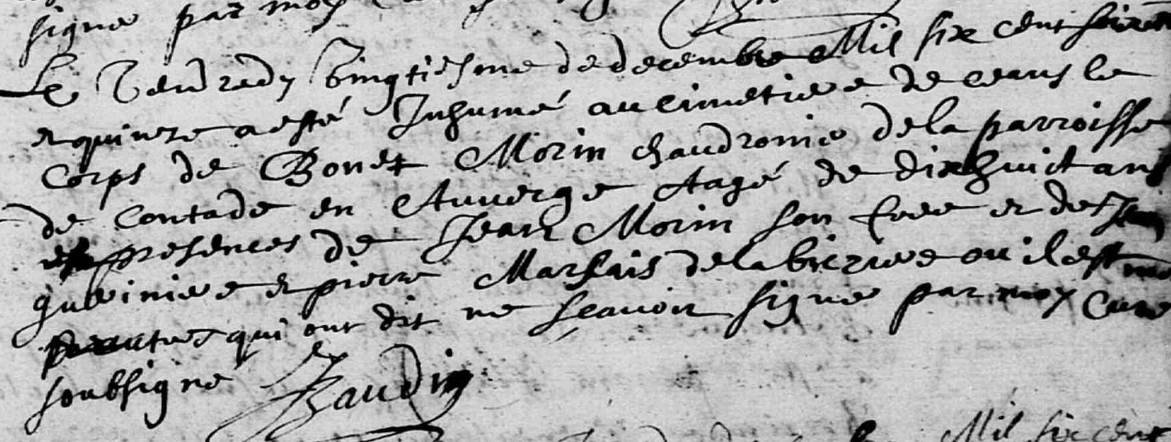 signe par moy
Le Vendredy Vingtiesme de decembre Mil six cent soixante
et quinze a esté Inhumé au cimetiere de ceans le
Corps de Bonet Morin chaudronie de la parroisse
de Contade en Auverge Aagé de dixhuict ans
es presences de Jean Morin son frere et de Jean
et pierre Marsais de la ou il est
autres qui ont dit ne scavoir signe par moy Cure
soubsigne Baudin
Mil six cent